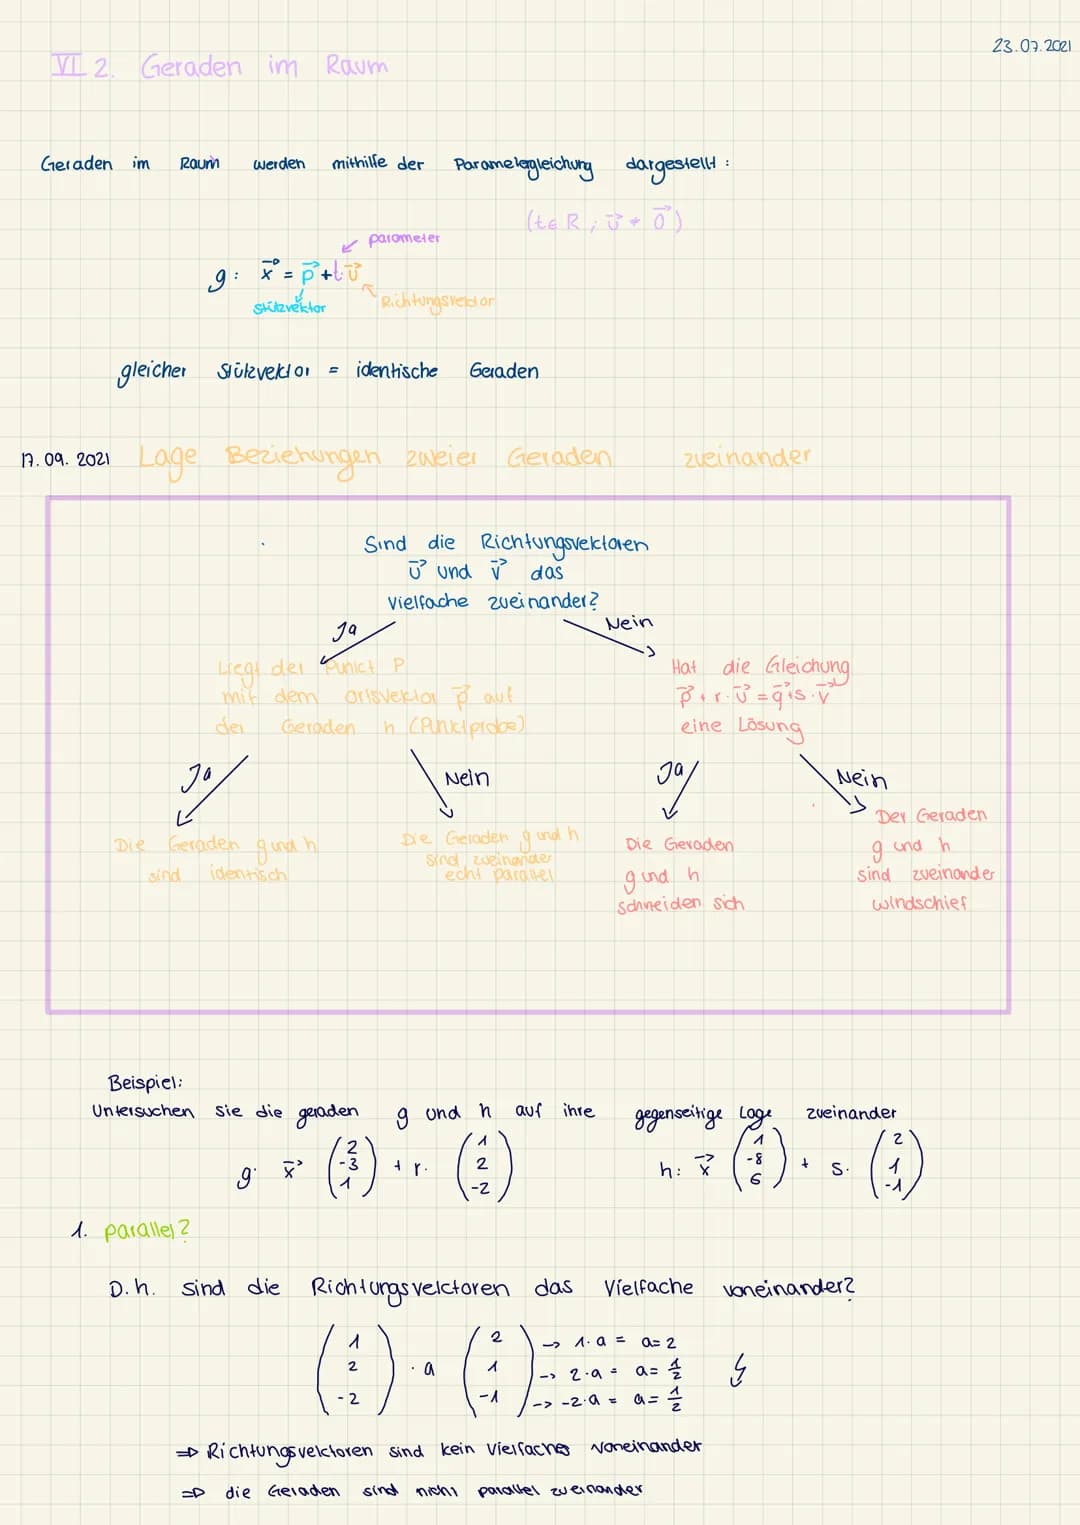 23.07.2021
VI 2. Geraden im Raum
Geraden im Raum werden mithilfe der Parametergleichung dargestellt :
(t∈R ; u⃗ ≠ 0⃗)
parameter
g : x⃗ = p⃗ + t·u⃗
Stützvektor
Richtungsvektor
gleicher Stützvektor = identische Geraden
17.09.2021 Lage Beziehungen zweier Geraden zueinander
Sind die Richtungsvektoren
u⃗ und v⃗ das
Vielfache zueinander?
Ja
Nein
Liegt der Punkt P
mit dem Ortsvektor p⃗ auf
der Geraden h (Punktprobe)
Hat die Gleichung
p⃗ + r·u⃗ = q⃗ + s·v⃗
eine Lösung
Ja
Nein
Ja
Nein
Die Geraden g und h
sind identisch
Die Geraden g und h
sind zueinander
echt parallel
Die Geraden
g und h
schneiden sich
Der Geraden
g und h
sind zueinander
windschief
Beispiel:
Untersuchen Sie die geraden g und h auf ihre gegenseitige Lage zueinander
g: x⃗ (2 -3 1) + r· (1 2 -2) h: x⃗ (1 -8 6) + s· (2 1 -1)
1. parallel?
D.h. sind die Richtungsvektoren das Vielfache voneinander?
1 2 → 1·a = a=2
2 · a 1 → 2·a = a= 1/2 ↯
-2 -1 → -2·a = a= 1/2
⇒ Richtungsvektoren sind kein Vielfaches voneinander
⇒ die Geraden sind nicht parallel zueinander